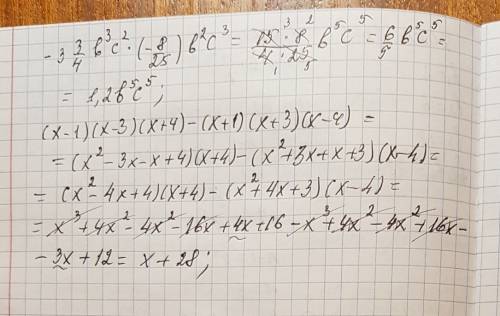 -3 3/4 b³c² · (-8/25) b²c³ = 15 ³ · 8 ² / 4 ₁ · 25 ₅ b⁵c⁵ = 6/5 b⁵c⁵ =
= 1,2b⁵c⁵;
(x-1)(x-3)(x+4)-(x+1)(x+3)(x-4) =
= (x²-3x-x+4)(x+4)-(x²+3x+x+3)(x-4) =
= (x²-4x+4)(x+4)-(x²+4x+3)(x-4) =
= x³+4x²-4x²-16x+4x+16-x³+4x²-4x²+16x-
-3x+12 = x+28;